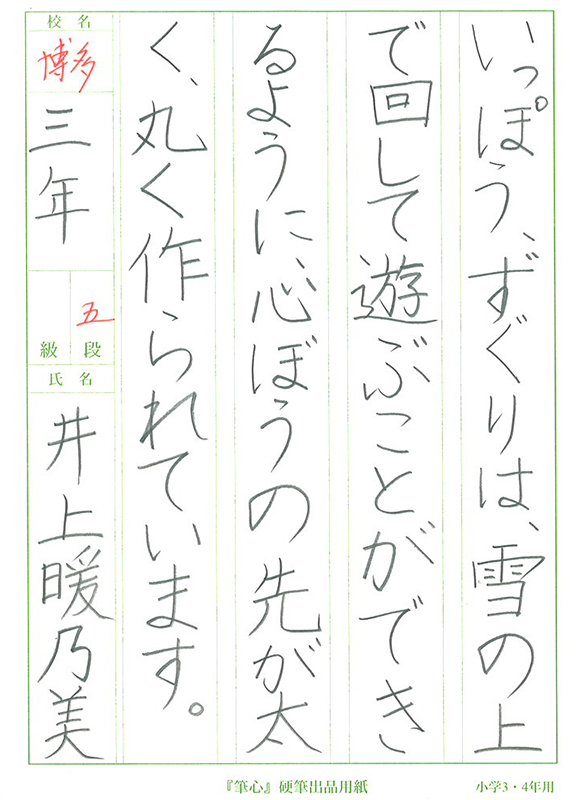 いっぽう、ずぐりは、雪の上
で回して遊ぶことができ
るように、心ぼうの先が太
く、丸く作られています。
校名
博多
三年
五
段
級
氏名
井上暖乃美
『筆心』硬筆出品用紙
小学3・4年用